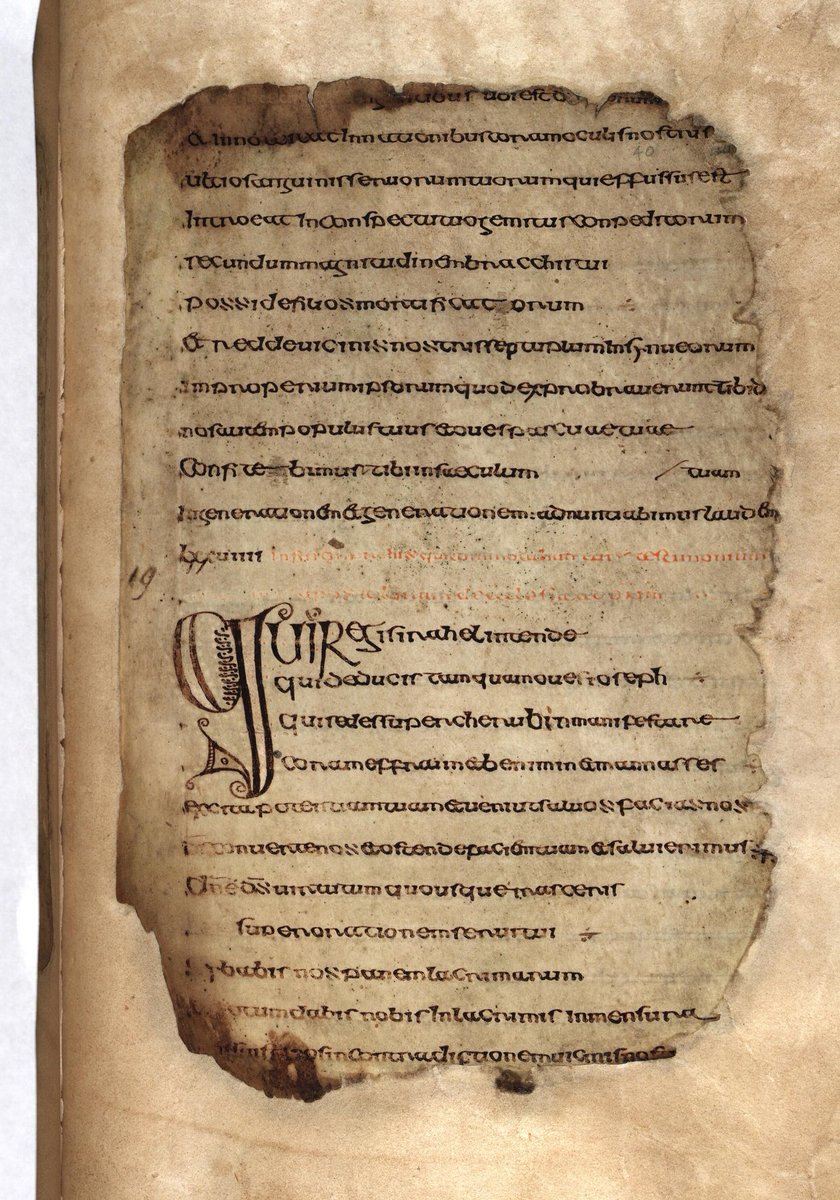 & innotescat in nationibus coram oculis nostris
40
ultio sanguinis seruorum tuorum qui effussus est
introeat in conspectu tuo gemitus conpeditorum
secundum magnitudinem brachi tui
posside filios mortificatorum
& redde uicinis nostris septuplum in sinu eorum
inproperium ipsorum quod exprobrauerunt tibi
nos autem populus tuus & oues pascuae tuae
confitebimur tibi in saeculum / tuam
in generationem & generationem adnuntiabimus laudem
lxxuiiii
19
Qui regis israhel intende
qui deducis tamquam oues ioseph
qui sedes super cherubin manifestare
coram effraim & beniamin & manasses
excita potentiam tuam & ueni ut saluos facias nos
ds conuerte nos & ostende faciem tuam & salui erimus
dne ds uirtutum quousque irasceris
super orationem serui tui
cibabis nos pane lacrimarum
potum dabis nobis in lacrimis in mensura
nos in contradictionem uicinis nos